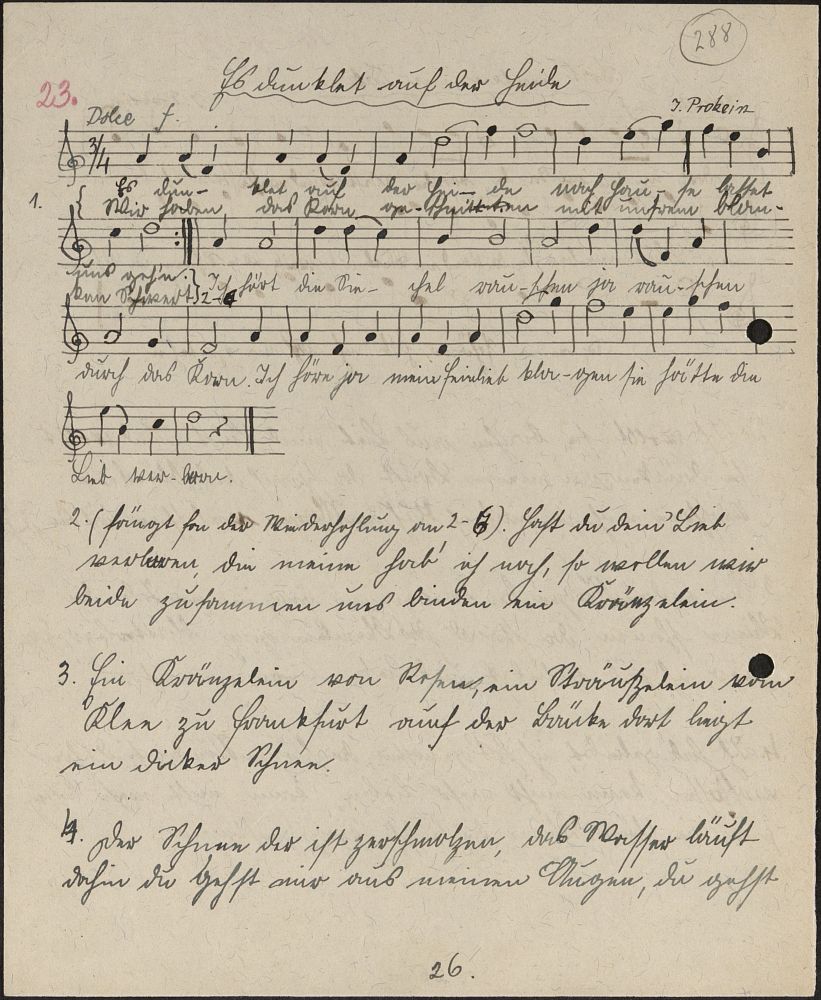 288
Es dunklet auf der Heide
23.
Dolce f.
J. Prokein
3/4
1. { Es dun- klet auf der Hei- de nach Hau- se lasset
Wir haben das Korn ge-schnitten mit unsrem blan-
uns geh'n.
ken Schwert} 2-6 Ich hört die Si- chel rau-schen ja rau-schen
durch das Korn. Ich höre ja mein feinlieb kla-gen sie hätte die
Lieb ver-loren.
2. (fängt von der Wiederhohlung an 2-6). Hast du dein Lieb
verloren, die meine hab' ich noch, so wollen wir
beide zusammen uns binden ein Kränzelein.
3. Ein Kränzelein von Rosen, ein Sträußelein vom
Klee zu Frankfurt auf der Brücke dort liegt
ein dicker Schnee.
4. Der Schnee der ist zerschmolzen, das Wasser läuft
dahin du gehst mir aus meinen Augen, du gehst
26.